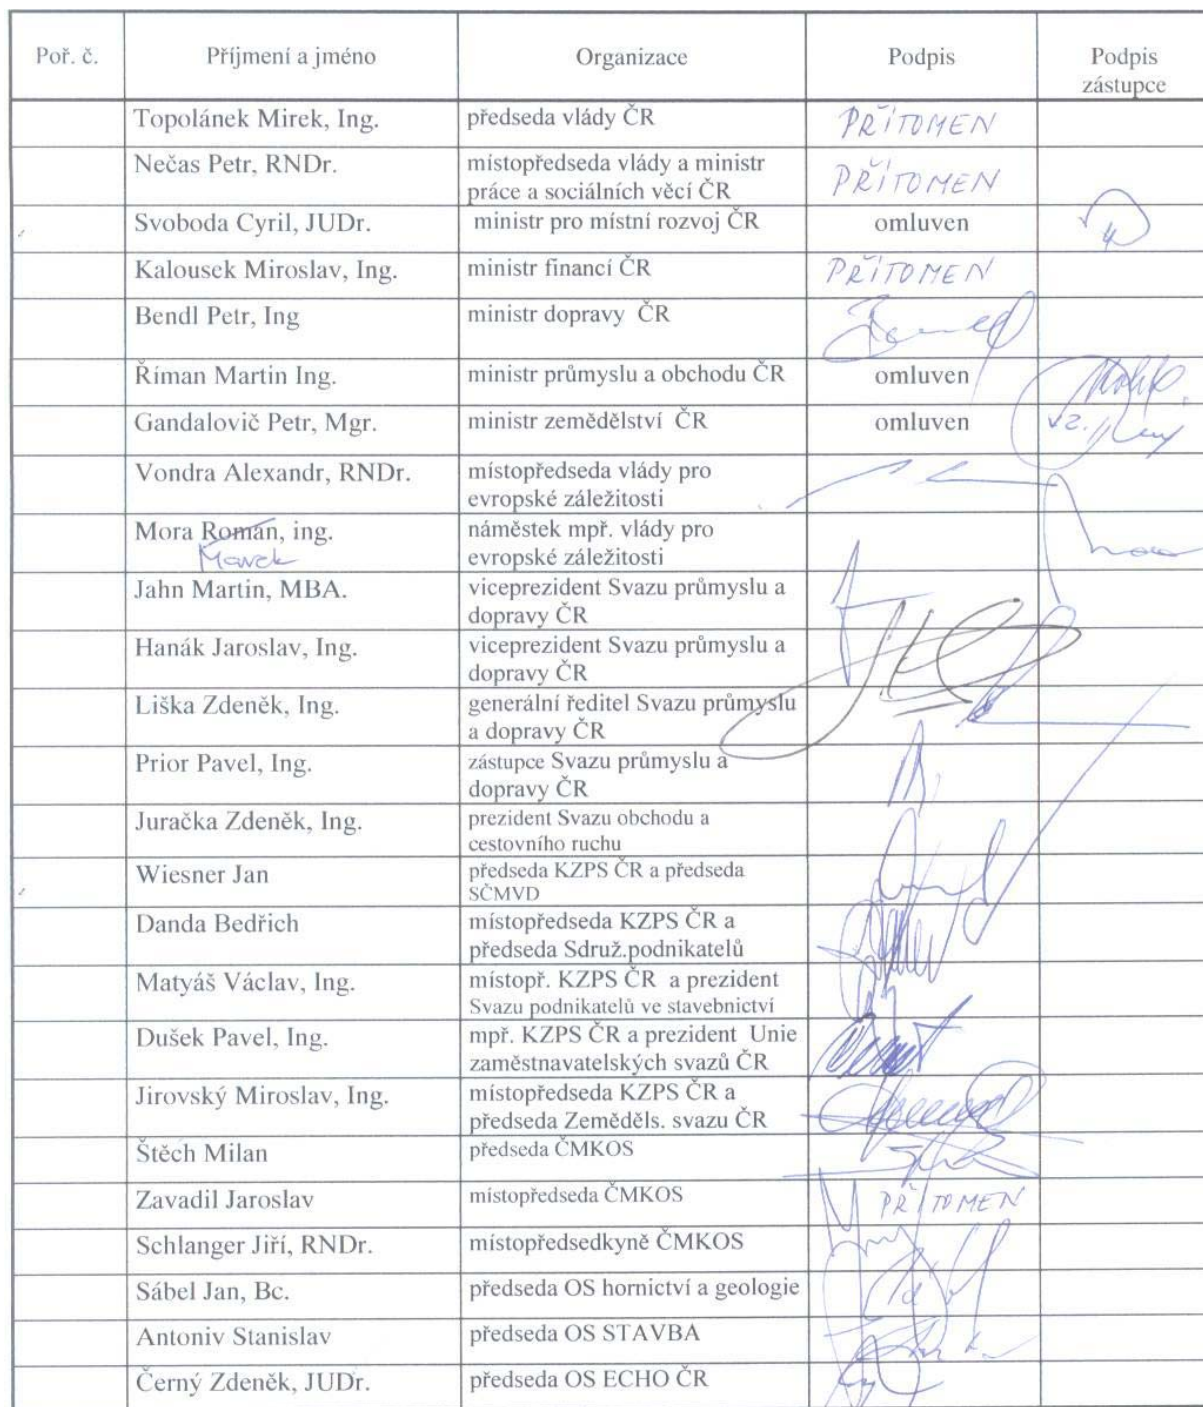 Poř. č. Příjmení a jméno Organizace Podpis Podpis
zástupce
Topolánek Mirek, Ing. předseda vlády ČR PŘÍTOMEN
Nečas Petr, RNDr. místopředseda vlády a ministr
práce a sociálních věcí ČR PŘÍTOMEN
Svoboda Cyril, JUDr. ministr pro místní rozvoj ČR omluven
Kalousek Miroslav, Ing. ministr financí ČR PŘÍTOMEN
Bendl Petr, Ing ministr dopravy ČR
Říman Martin Ing. ministr průmyslu a obchodu ČR omluven
Gandalovič Petr, Mgr. ministr zemědělství ČR omluven vz.
Vondra Alexandr, RNDr. místopředseda vlády pro
evropské záležitosti
Mora Roman, ing. náměstek mpř. vlády pro
Marek evropské záležitosti
Jahn Martin, MBA. viceprezident Svazu průmyslu a
dopravy ČR
Hanák Jaroslav, Ing. viceprezident Svazu průmyslu a
dopravy ČR
Liška Zdeněk, Ing. generální ředitel Svazu průmyslu
a dopravy ČR
Prior Pavel, Ing. zástupce Svazu průmyslu a
dopravy ČR
Juračka Zdeněk, Ing. prezident Svazu obchodu a
cestovního ruchu
Wiesner Jan předseda KZPS ČR a předseda
SČMVD
Danda Bedřich místopředseda KZPS ČR a
předseda Sdruž.podnikatelů
Matyáš Václav, Ing. místopř. KZPS ČR a prezident
Svazu podnikatelů ve stavebnictví
Dušek Pavel, Ing. mpř. KZPS ČR a prezident Unie
zaměstnavatelských svazů ČR
Jirovský Miroslav, Ing. místopředseda KZPS ČR a
předseda Zeměděls. svazu ČR
Štěch Milan předseda ČMKOS
Zavadil Jaroslav místopředseda ČMKOS PŘÍTOMEN
Schlanger Jiří, RNDr. místopředsedkyně ČMKOS
Sábel Jan, Bc. předseda OS hornictví a geologie
Antoniv Stanislav předseda OS STAVBA
Černý Zdeněk, JUDr. předseda OS ECHO ČR